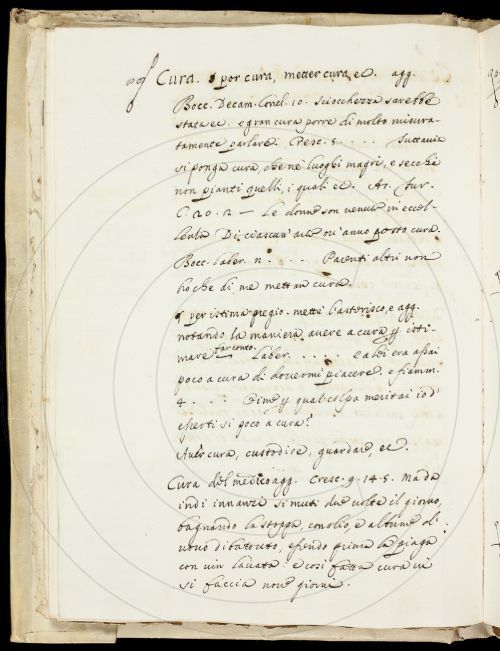 Cura. § por cura, metter cura, ec. agg.
Bocc. Decam. Concl. 10. Sciocchezza sarebbe
stata ec. e gran cura porre di molto misura-
tamente parlare. Cresc. 5. . . . . Tuttavia
si ponga cura, che ne' luoghi magri, e secchi
non pianti quelli, i quali ec. Ar. Fur.
C. 20. 2 — Le donne son venute in eccel-
lenza Di ciascun' arte ov' anno posto cura.
Bocc. laber. n. . . . Parenti altri non
ho che di me mettan cura.
§ per istima pregio. metti l'asterisco, e agg.
notando la maniera avere a cura p isti-
mare far conto. Laber. . . . . . e a lei era assai
poco a cura di dovermi piacere. e fiamm.
4. . . . Dime p qual colpa meritai io d'
esserti sì poco a cura?
Aver cura, custodire, guardare, ec.
Cura del medico agg. Cresc. 9. 14. 5. Ma da
indi innanzi si muti due volte il giorno,
bagnando la stoppa, con olio, e albume d'
uovo dibattuto, essendo prima la piaga
con vin lavata: e così fatta cura vi
si faccia nove giorni.